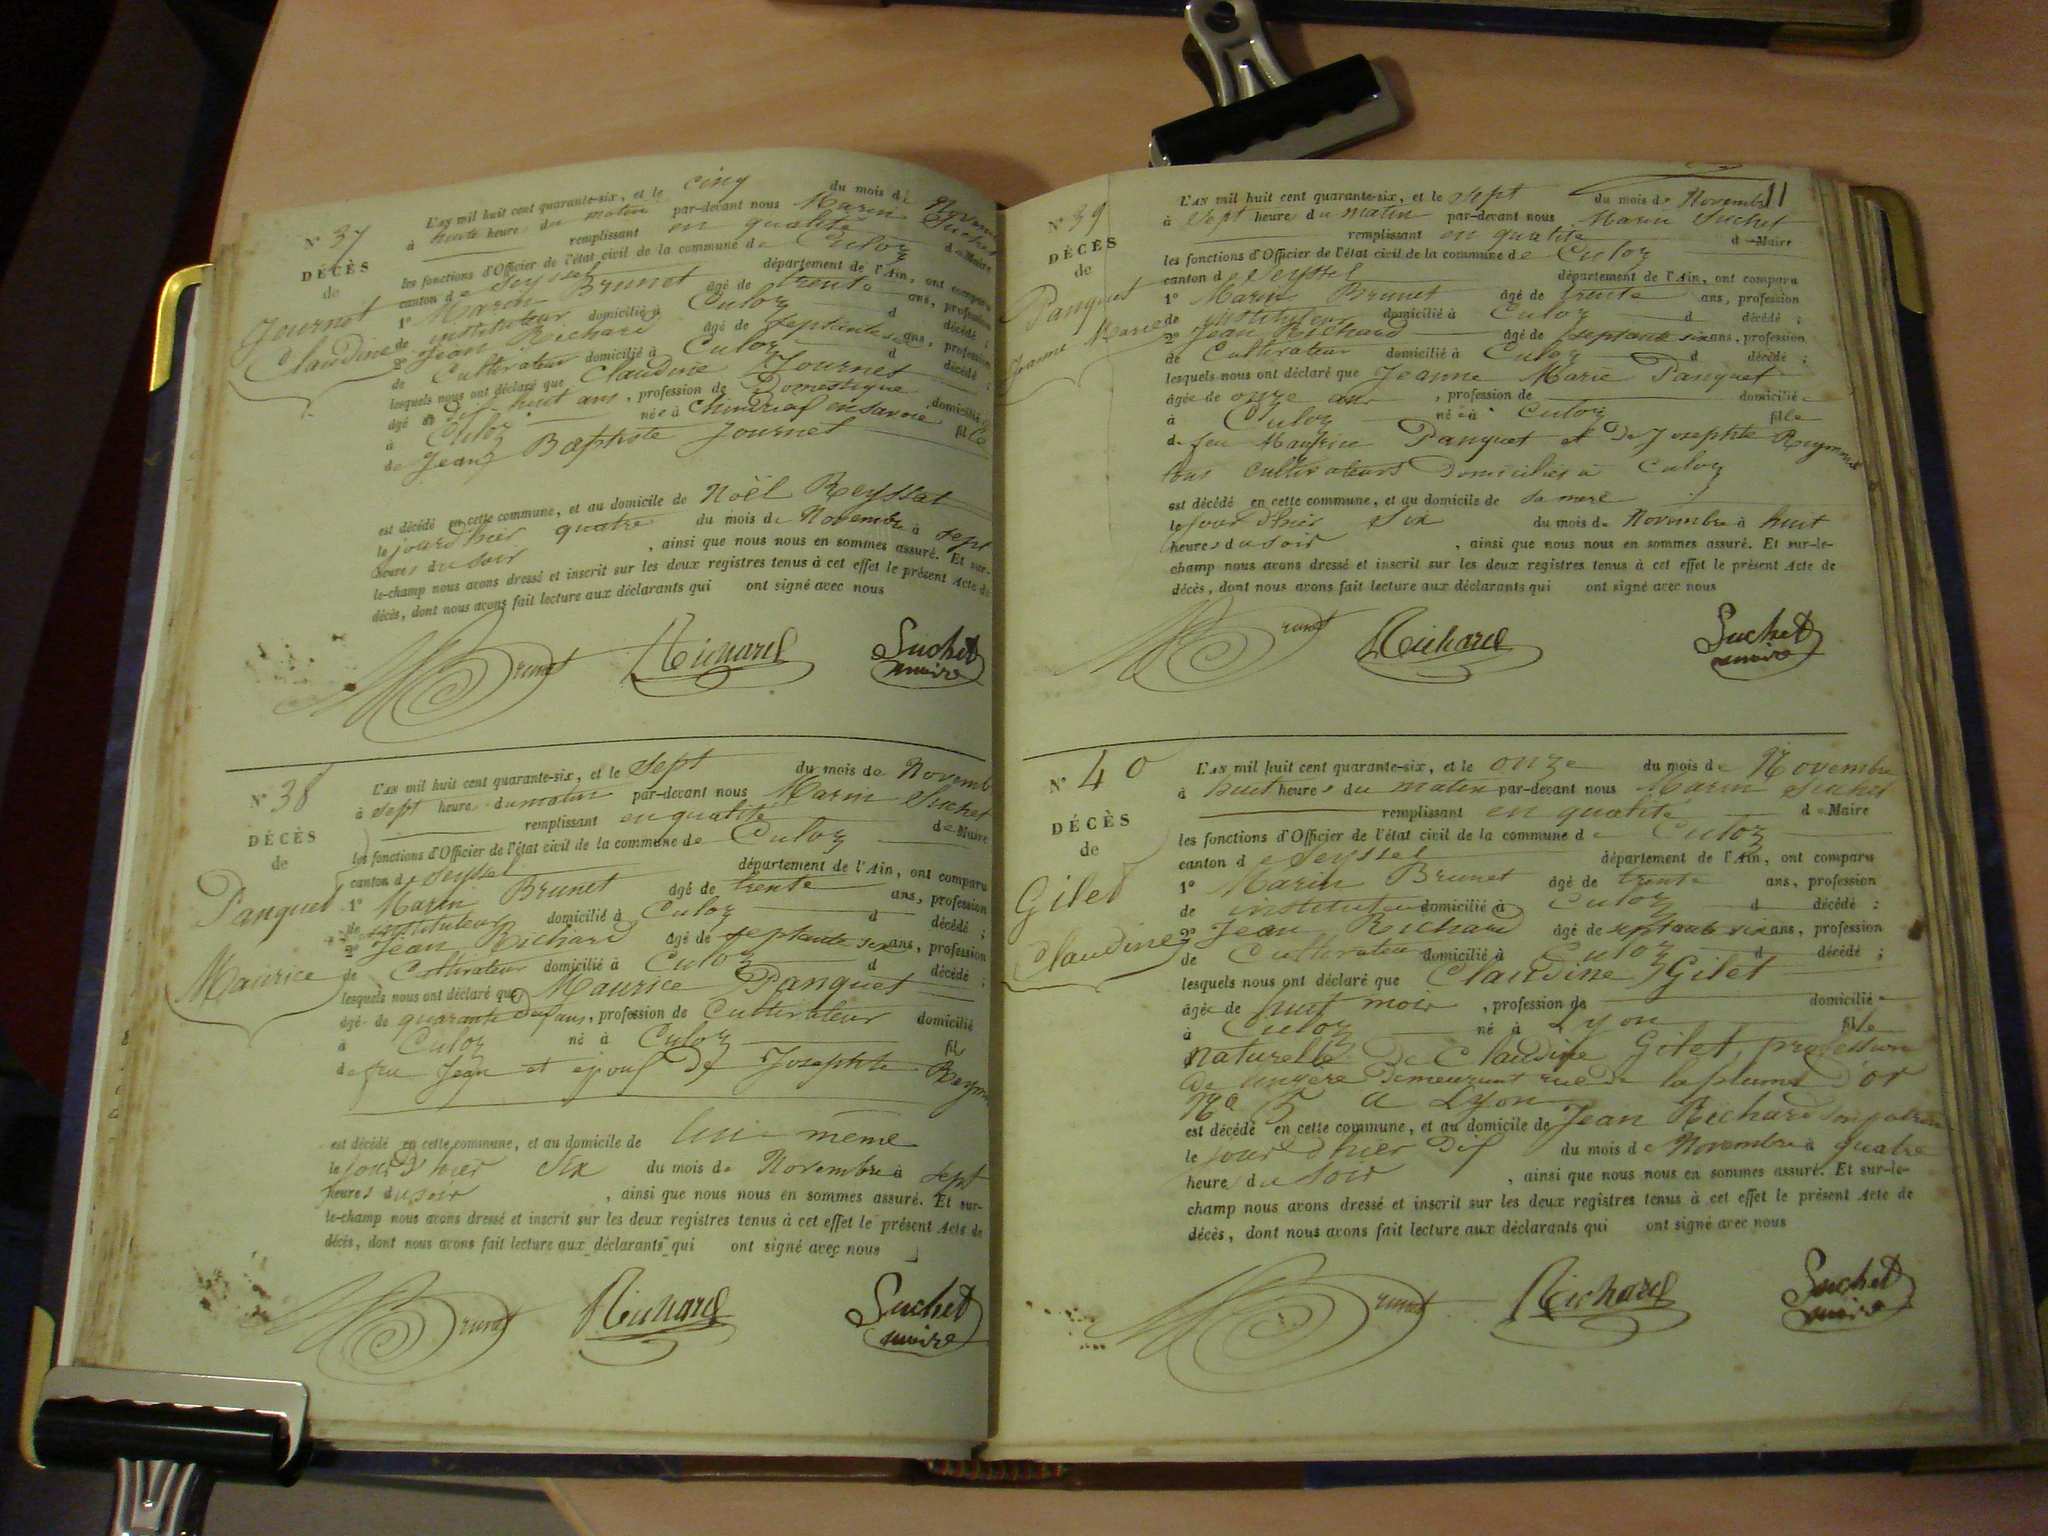 N° 37
DÉCÈS
de
Journet
Claudine
L'AN mil huit cent quarante-six, et le cinq du mois de Novembre
à heures du matin par-devant nous Marin Suchet
remplissant en qualité de Maire
les fonctions d'Officier de l'état civil de la commune de Culoz
canton de Seyssel département de l'Ain, ont comparu
1° Marin Brunet âgé de trente ans, profession
de instituteur domicilié à Culoz d décédé ;
2° Jean Richard âgé de septante six ans, profession
de Cultivateur domicilié à Culoz d décédé ;
lesquels nous ont déclaré que Claudine Journet
âgé de dix huit ans, profession de Domestique, domicilié
à Culoz née à en savoie fille
de Jean Baptiste Journet
est décédé en cette commune, et au domicile de Noël Reyssat
le jour d'hier quatre du mois de Novembre à sept
heures du soir, ainsi que nous nous en sommes assuré. Et sur-
le-champ nous avons dressé et inscrit sur les deux registres tenus à cet effet le présent Acte de
décès, dont nous avons fait lecture aux déclarants qui ont signé avec nous
Brunet Richard Suchet
maire
N° 38
DÉCÈS
de
Panquet
Maurice
L'AN mil huit cent quarante-six, et le sept du mois de Novemb
à sept heure du matin par-devant nous Marin Suchet
remplissant en qualité de Maire
les fonctions d'Officier de l'état civil de la commune de Culoz
canton de Seyssel département de l'Ain, ont comparu
1° Marin Brunet âgé de trente ans, profession
de instituteur domicilié à Culoz d décédé ;
2° Jean Richard âgé de septante six ans, profession
de Cultivateur domicilié à Culoz d décédé ;
lesquels nous ont déclaré que Maurice Panquet
âgé de quarante deux ans, profession de Cultivateur domicilié
à Culoz né à Culoz fils
de feu Jean et epoux de Josephte
est décédé en cette commune, et au domicile de lui meme
le jour d'hier six du mois de Novembre à sept
heures du soir, ainsi que nous nous en sommes assuré. Et sur-
le-champ nous avons dressé et inscrit sur les deux registres tenus à cet effet le présent Acte de
décès, dont nous avons fait lecture aux déclarants qui ont signé avec nous
Brunet Richard Suchet
maire
11
N° 39
DÉCÈS
de
Panquet
Jeanne Marie
L'AN mil huit cent quarante-six, et le sept du mois de Novembre
à sept heure du matin par-devant nous Marin Suchet
remplissant en qualité de Maire
les fonctions d'Officier de l'état civil de la commune de Culoz
canton de Seyssel département de l'Ain, ont comparu
1° Marin Brunet âgé de trente ans, profession
de instituteur domicilié à Culoz d décédé ;
2° Jean Richard âgé de septante six ans, profession
de Cultivateur domicilié à Culoz d décédé ;
lesquels nous ont déclaré que Jeanne Marie Panquet
âgée de onze ans, profession de domicilié
à Culoz née à Culoz fille
de feu Maurice Panquet et De Josephte
tous cultivateurs Domiciliés à Culoz
est décédé en cette commune, et au domicile de sa mere
le jour d'hier six du mois de Novembre à huit
heures du soir, ainsi que nous nous en sommes assuré. Et sur-le-
champ nous avons dressé et inscrit sur les deux registres tenus à cet effet le présent Acte de
décès, dont nous avons fait lecture aux déclarants qui ont signé avec nous
Brunet Richard Suchet
maire
N° 40
DÉCÈS
de
Gilet
Claudine
L'AN mil huit cent quarante-six, et le onze du mois de Novembre
à huit heures du matin par-devant nous Marin Suchet
remplissant en qualité de Maire
les fonctions d'Officier de l'état civil de la commune de Culoz
canton de Seyssel département de l'Ain, ont comparu
1° Marin Brunet âgé de trente ans, profession
de instituteur domicilié à Culoz d décédé ;
2° Jean Richard âgé de septante six ans, profession
de Cultivateur domicilié à Culoz d décédé ;
lesquels nous ont déclaré que Claudine Gilet
âgée de huit mois, profession de domicilié
à Culoz né à Lyon fille
naturelle De Claudine Gilet, profession
De lingère Demeurant rue de la plume D'or
N° 5 a Lyon
est décédé en cette commune, et au domicile de Jean Richard son patron
le jour d'hier Dix du mois de Novembre à quatre
heure du soir, ainsi que nous nous en sommes assuré. Et sur-le-
champ nous avons dressé et inscrit sur les deux registres tenus à cet effet le présent Acte de
décès, dont nous avons fait lecture aux déclarants qui ont signé avec nous
Brunet Richard Suchet
maire